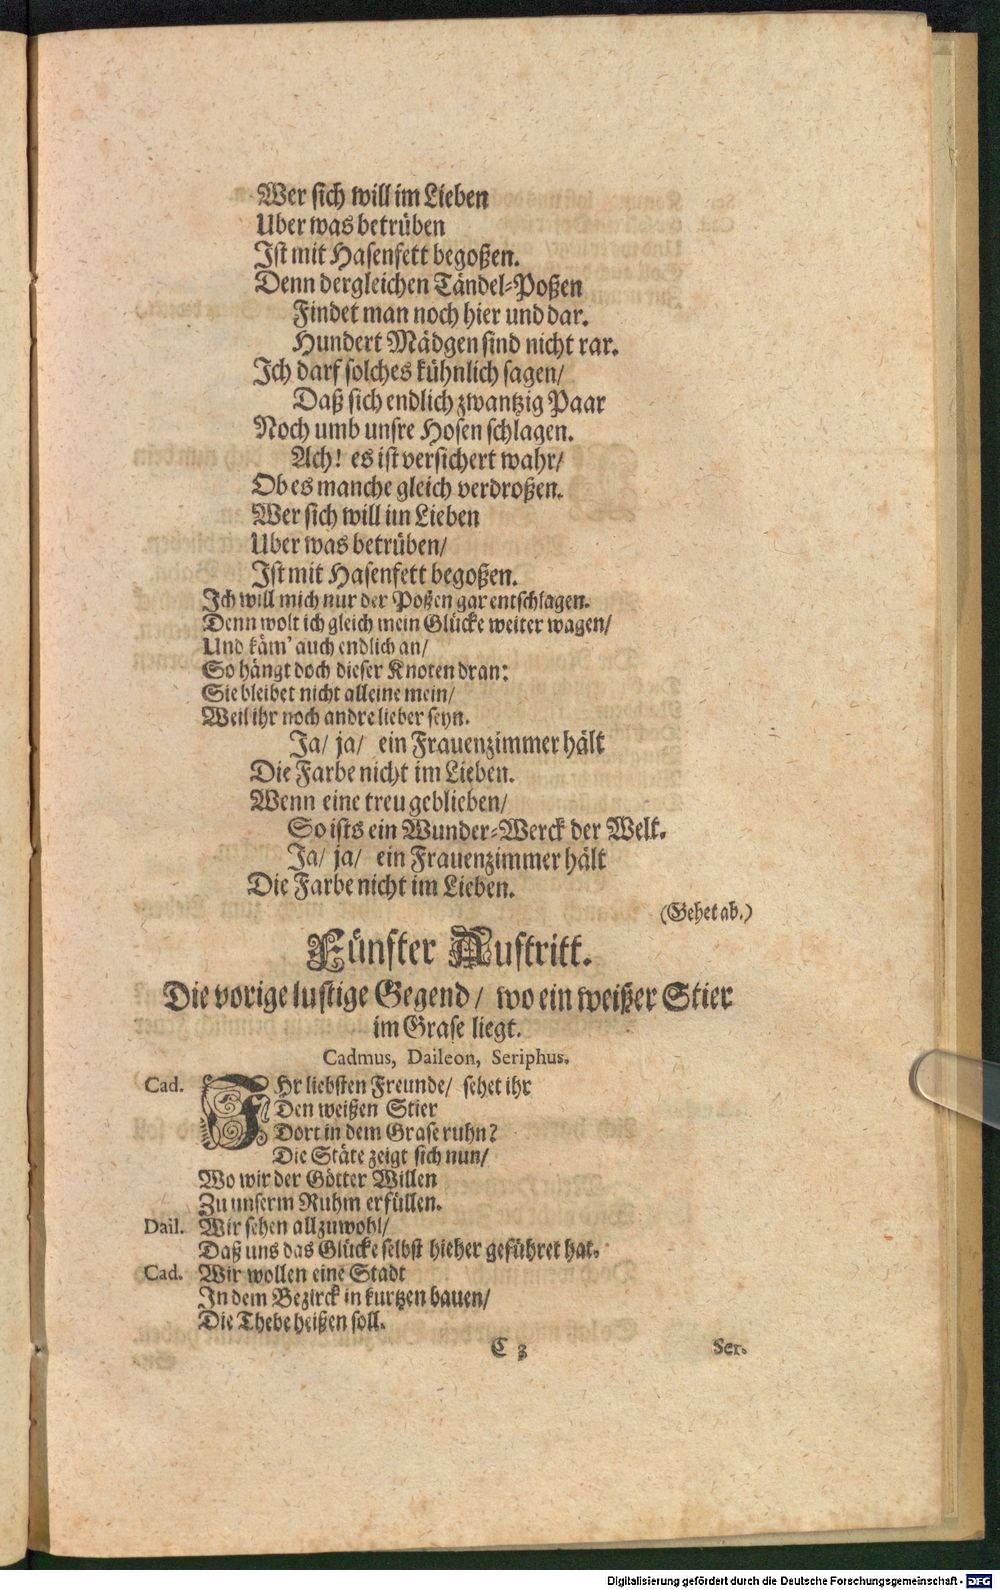 Wer sich will im Lieben
Uber was betrüben
Ist mit Hasenfett begoßen.
Denn dergleichen Tändel-Poßen
Findet man noch hier und dar.
Hundert Mädgen sind nicht rar.
Ich darf solches kühnlich sagen/
Daß sich endlich zwantzig Paar
Noch umb unsre Hosen schlagen.
Ach! es ist versichert wahr/
Ob es manche gleich verdroßen.
Wer sich will im Lieben
Uber was betrüben/
Ist mit Hasenfett begoßen.
Ich will mich nur der Poßen gar entschlagen.
Denn wolt ich gleich mein Glücke weiter wagen/
Und käm' auch endlich an/
So hängt doch dieser Knoten dran:
Sie bleibet nicht alleine mein/
Weil ihr noch andre lieber seyn.
Ja/ ja/ ein Frauenzimmer hält
Die Farbe nicht im Lieben.
Wenn eine treu geblieben/
So ists ein Wunder-Werck der Welt.
Ja/ ja/ ein Frauenzimmer hält
Die Farbe nicht im Lieben.
(Gehet ab.)
Fünfter Auftritt.
Die vorige lustige Gegend/ wo ein weißer Stier
im Grase liegt.
Cadmus, Daileon, Seriphus.
Cad. IHr liebsten Freunde/ sehet ihr
Den weißen Stier
Dort in dem Grase ruhn?
Die Stäte zeigt sich nun/
Wo wir der Götter Willen
Zu unserm Ruhm erfüllen.
Dail. Wir sehen allzuwohl/
Daß uns das Glücke selbst hieher geführet hat.
Cad. Wir wollen eine Stadt
In dem Bezirck in kurtzen bauen/
Die Thebe heißen soll.
C 3 Ser.
Digitalisierung gefördert durch die Deutsche Forschungsgemeinschaft - DFG